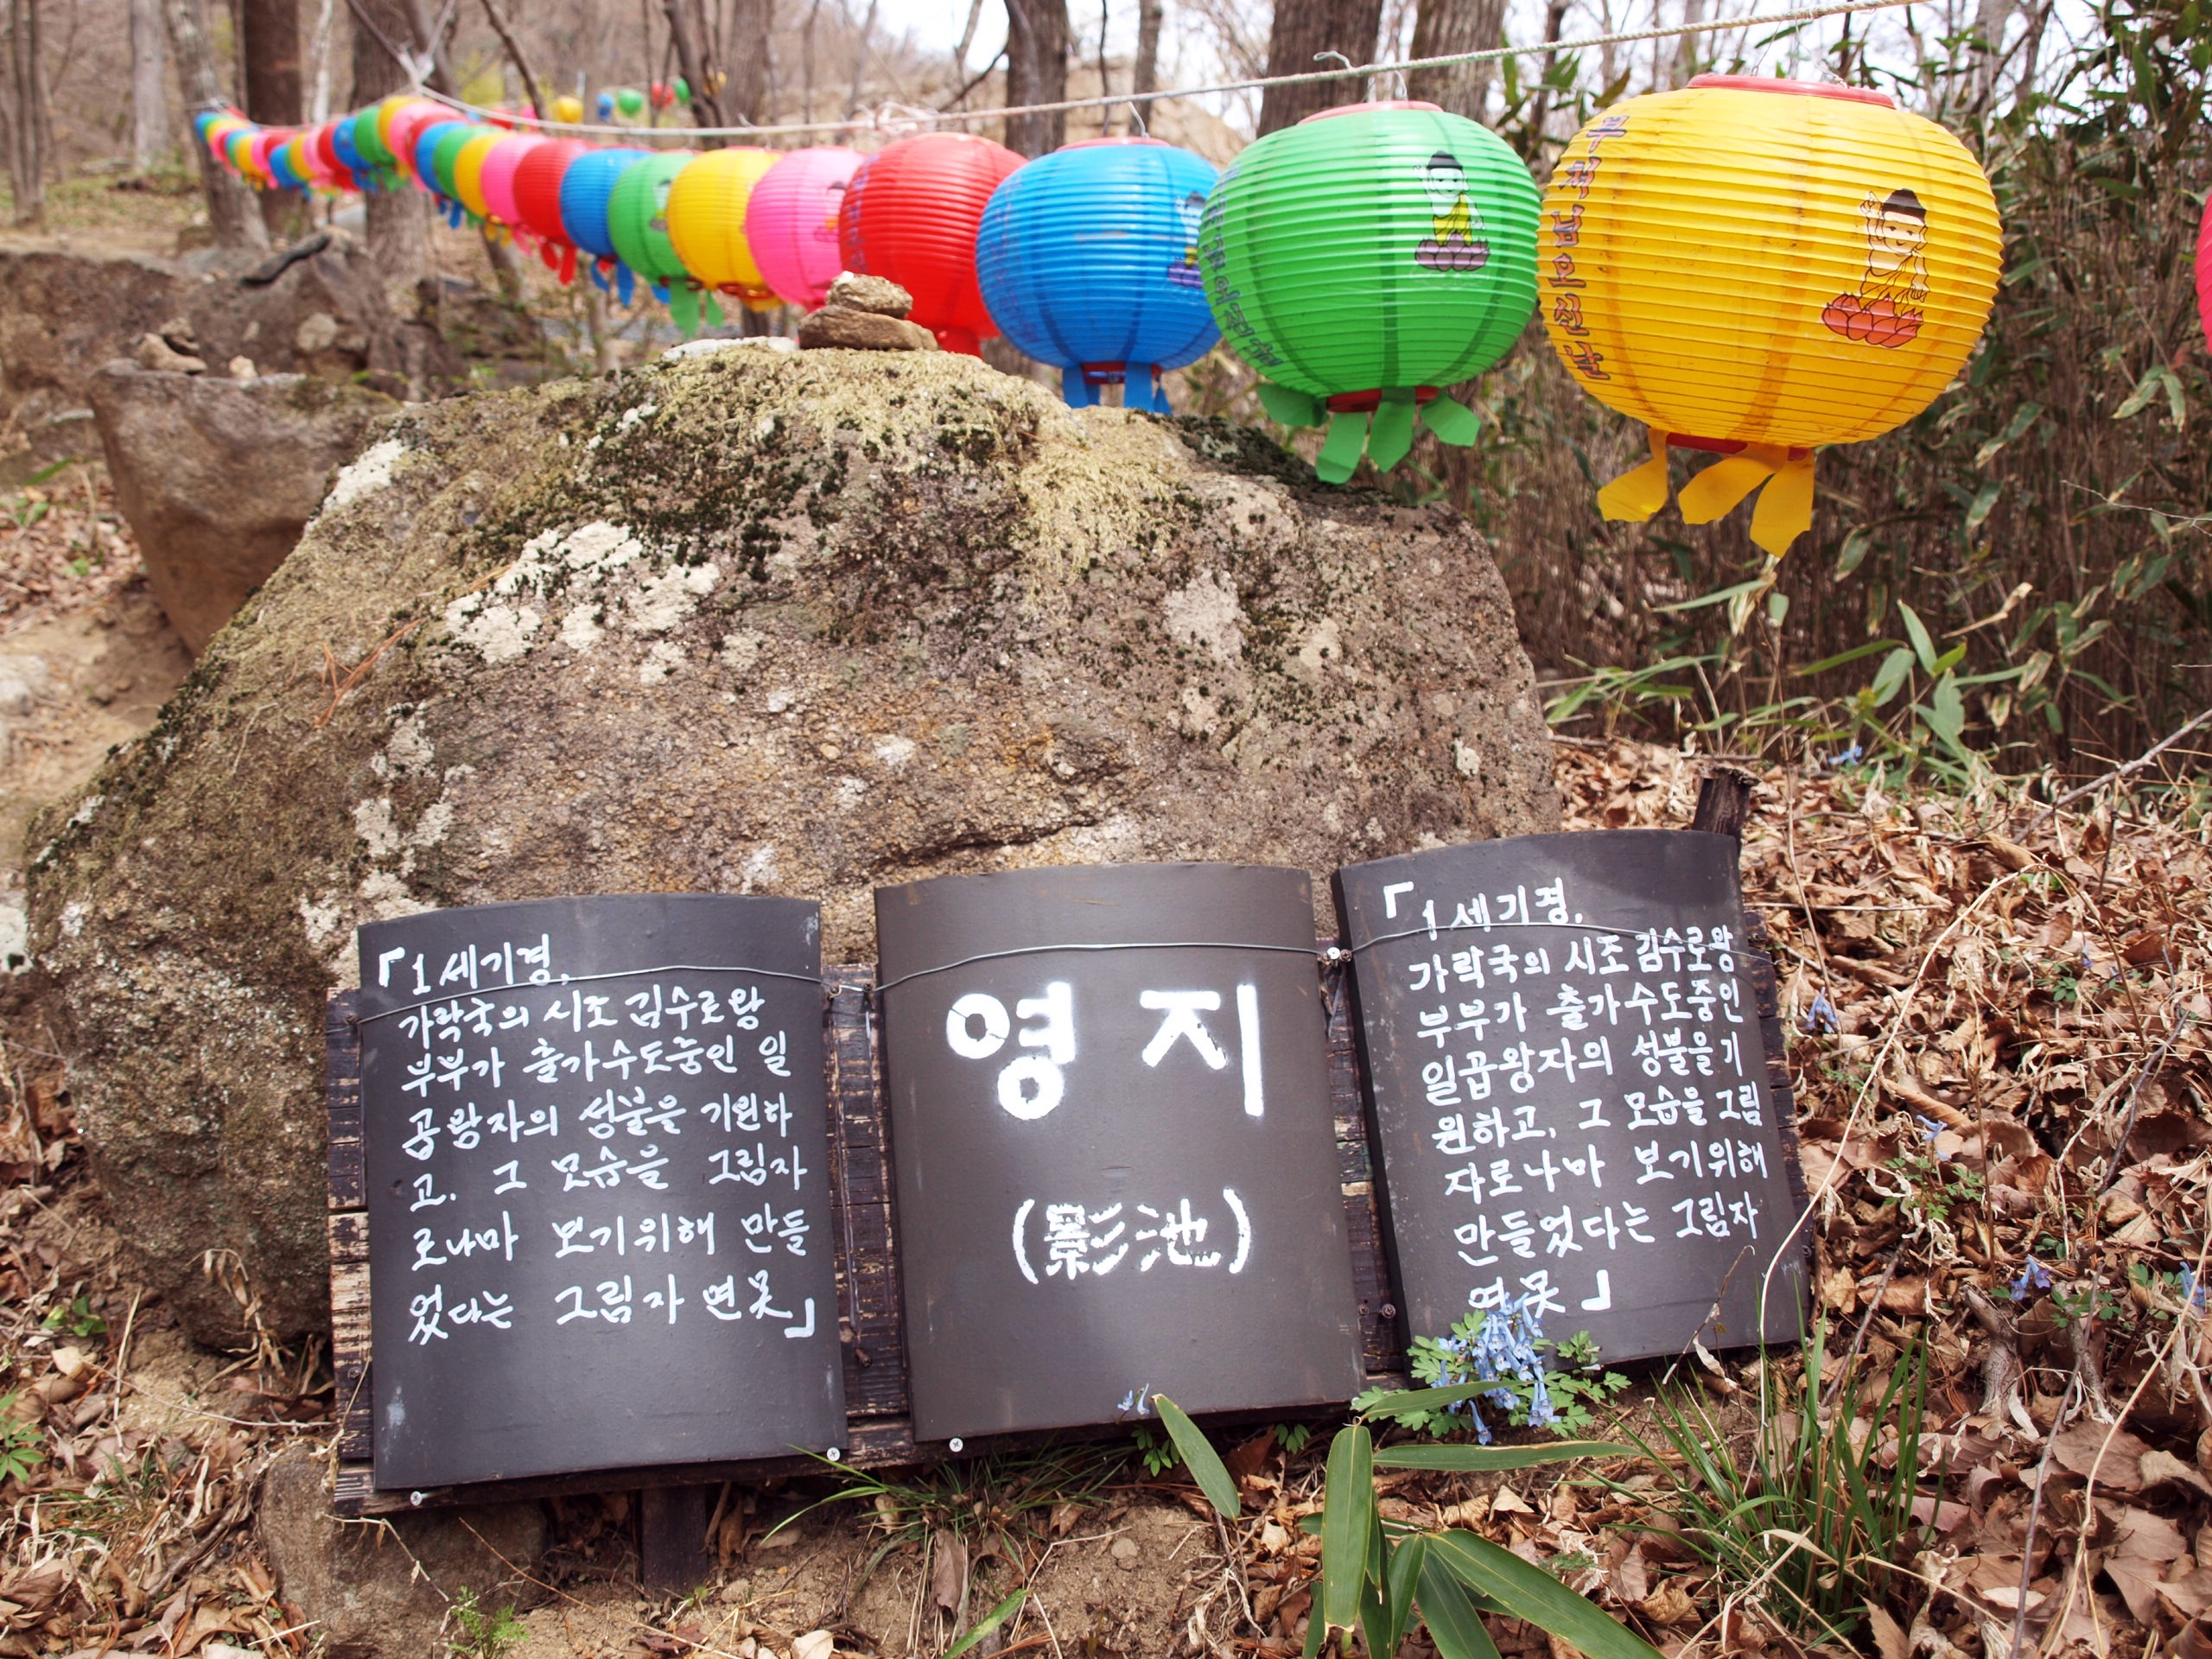 「1세기경,
가락국의 시조 김수로왕
부부가 출가수도중인 일
곱왕자의 성불을 기원하
고, 그 모습을 그림자
로나마 보기위해 만들
었다는 그림자 연못」
영지
(影池)
「1세기경,
가락국의 시조 김수로왕
부부가 출가수도중인
일곱왕자의 성불을 기
원하고, 그 모습을 그림
자로나마 보기위해
만들었다는 그림자
연못」